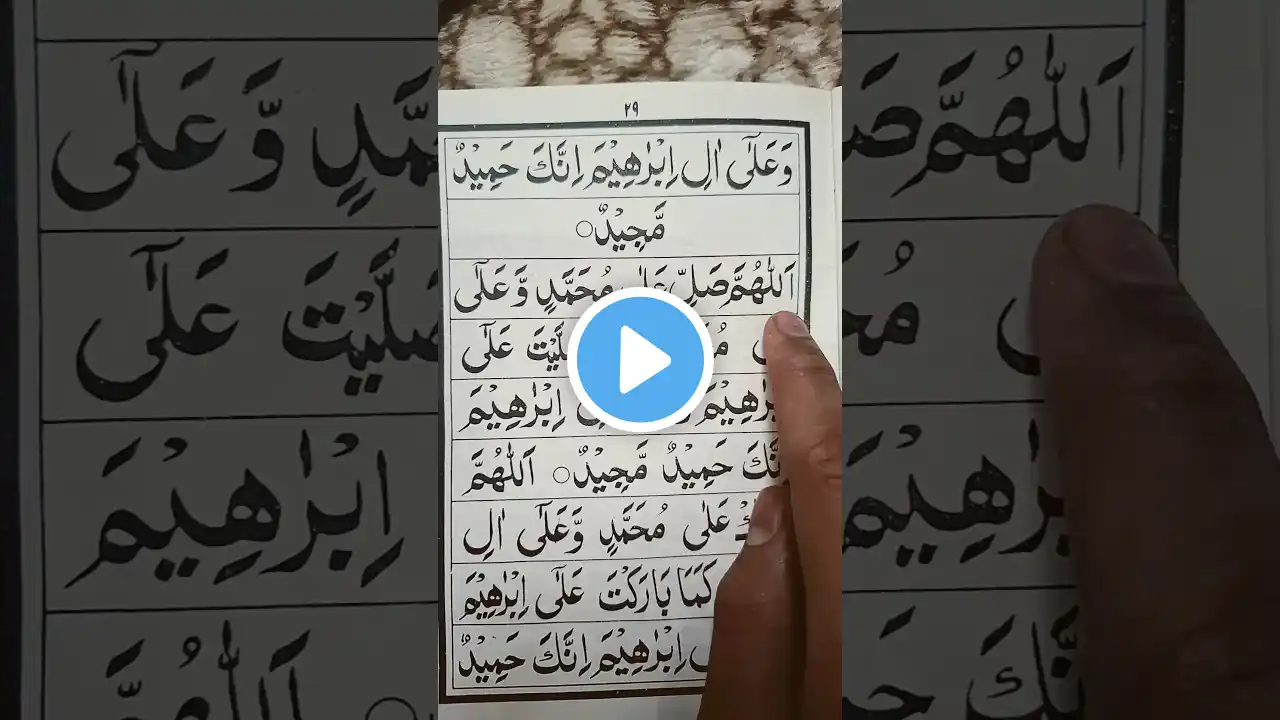 ٢٩
وَعَلٰٓى اٰلِ اِبْرٰهِيْمَ اِنَّكَ حَمِيْدٌ
مَّجِيْدٌ○
اَللّٰهُمَّ صَلِّ عَلٰى مُحَمَّدٍ وَّعَلٰٓى
صَلَّيْتَ عَلٰٓى
اِبْرٰهِيْمَ
حَمِيْدٌ مَّجِيْدٌ○ اَللّٰهُمَّ
عَلٰى مُحَمَّدٍ وَّعَلٰٓى اٰلِ
كَمَا بَارَكْتَ عَلٰٓى اِبْرٰهِيْمَ
اِبْرٰهِيْمَ اِنَّكَ حَمِيْدٌ